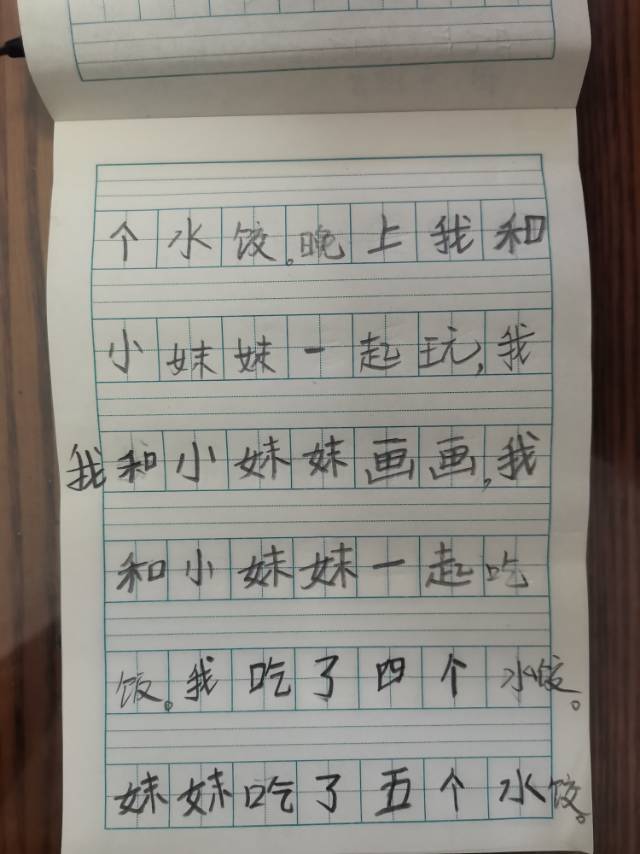 个水饺。晚上我和
小妹妹一起玩,我
我和小妹妹画画,我
和小妹妹一起吃
饭。我吃了四个水饺。
妹妹吃了五个水饺。